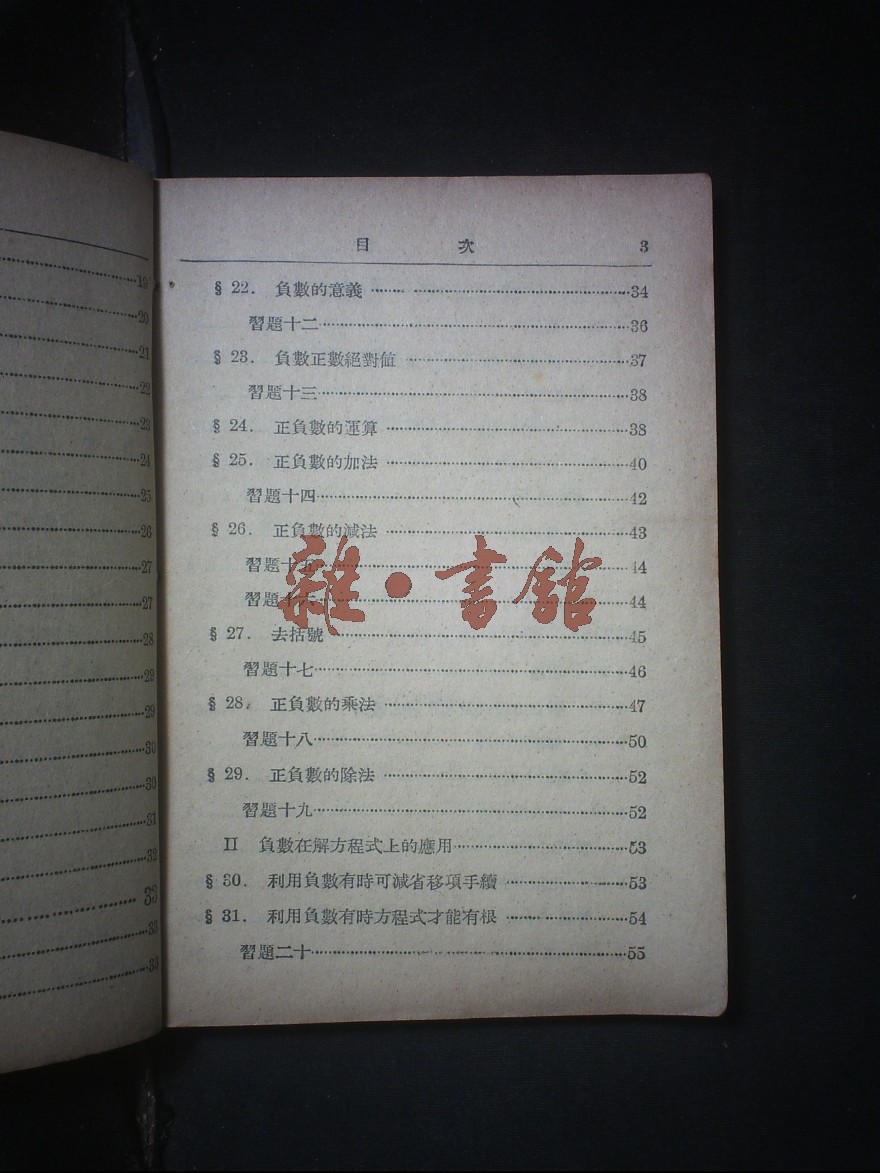 19
20
21
22
23
24
25
26
27
27
28
29
29
30
30
31
32
33
33
33
目 次 3
§ 22. 負數的意義 ……………34
習題十二……………36
§ 23. 負數正數絕對値 ……………37
習題十三……………38
§ 24. 正負數的運算 ……………38
§ 25. 正負數的加法 ……………40
習題十四……………42
§ 26. 正負數的減法 ……………43
習題十五……………44
習題十六……………44
§ 27. 去括號 ……………45
習題十七……………46
§ 28. 正負數的乘法 ……………47
習題十八……………50
§ 29. 正負數的除法 ……………52
習題十九……………52
II 負數在解方程式上的應用……………53
§ 30. 利用負數有時可減省移項手續 ……………53
§ 31. 利用負數有時方程式才能有根 ……………54
習題二十……………55
雜·書館